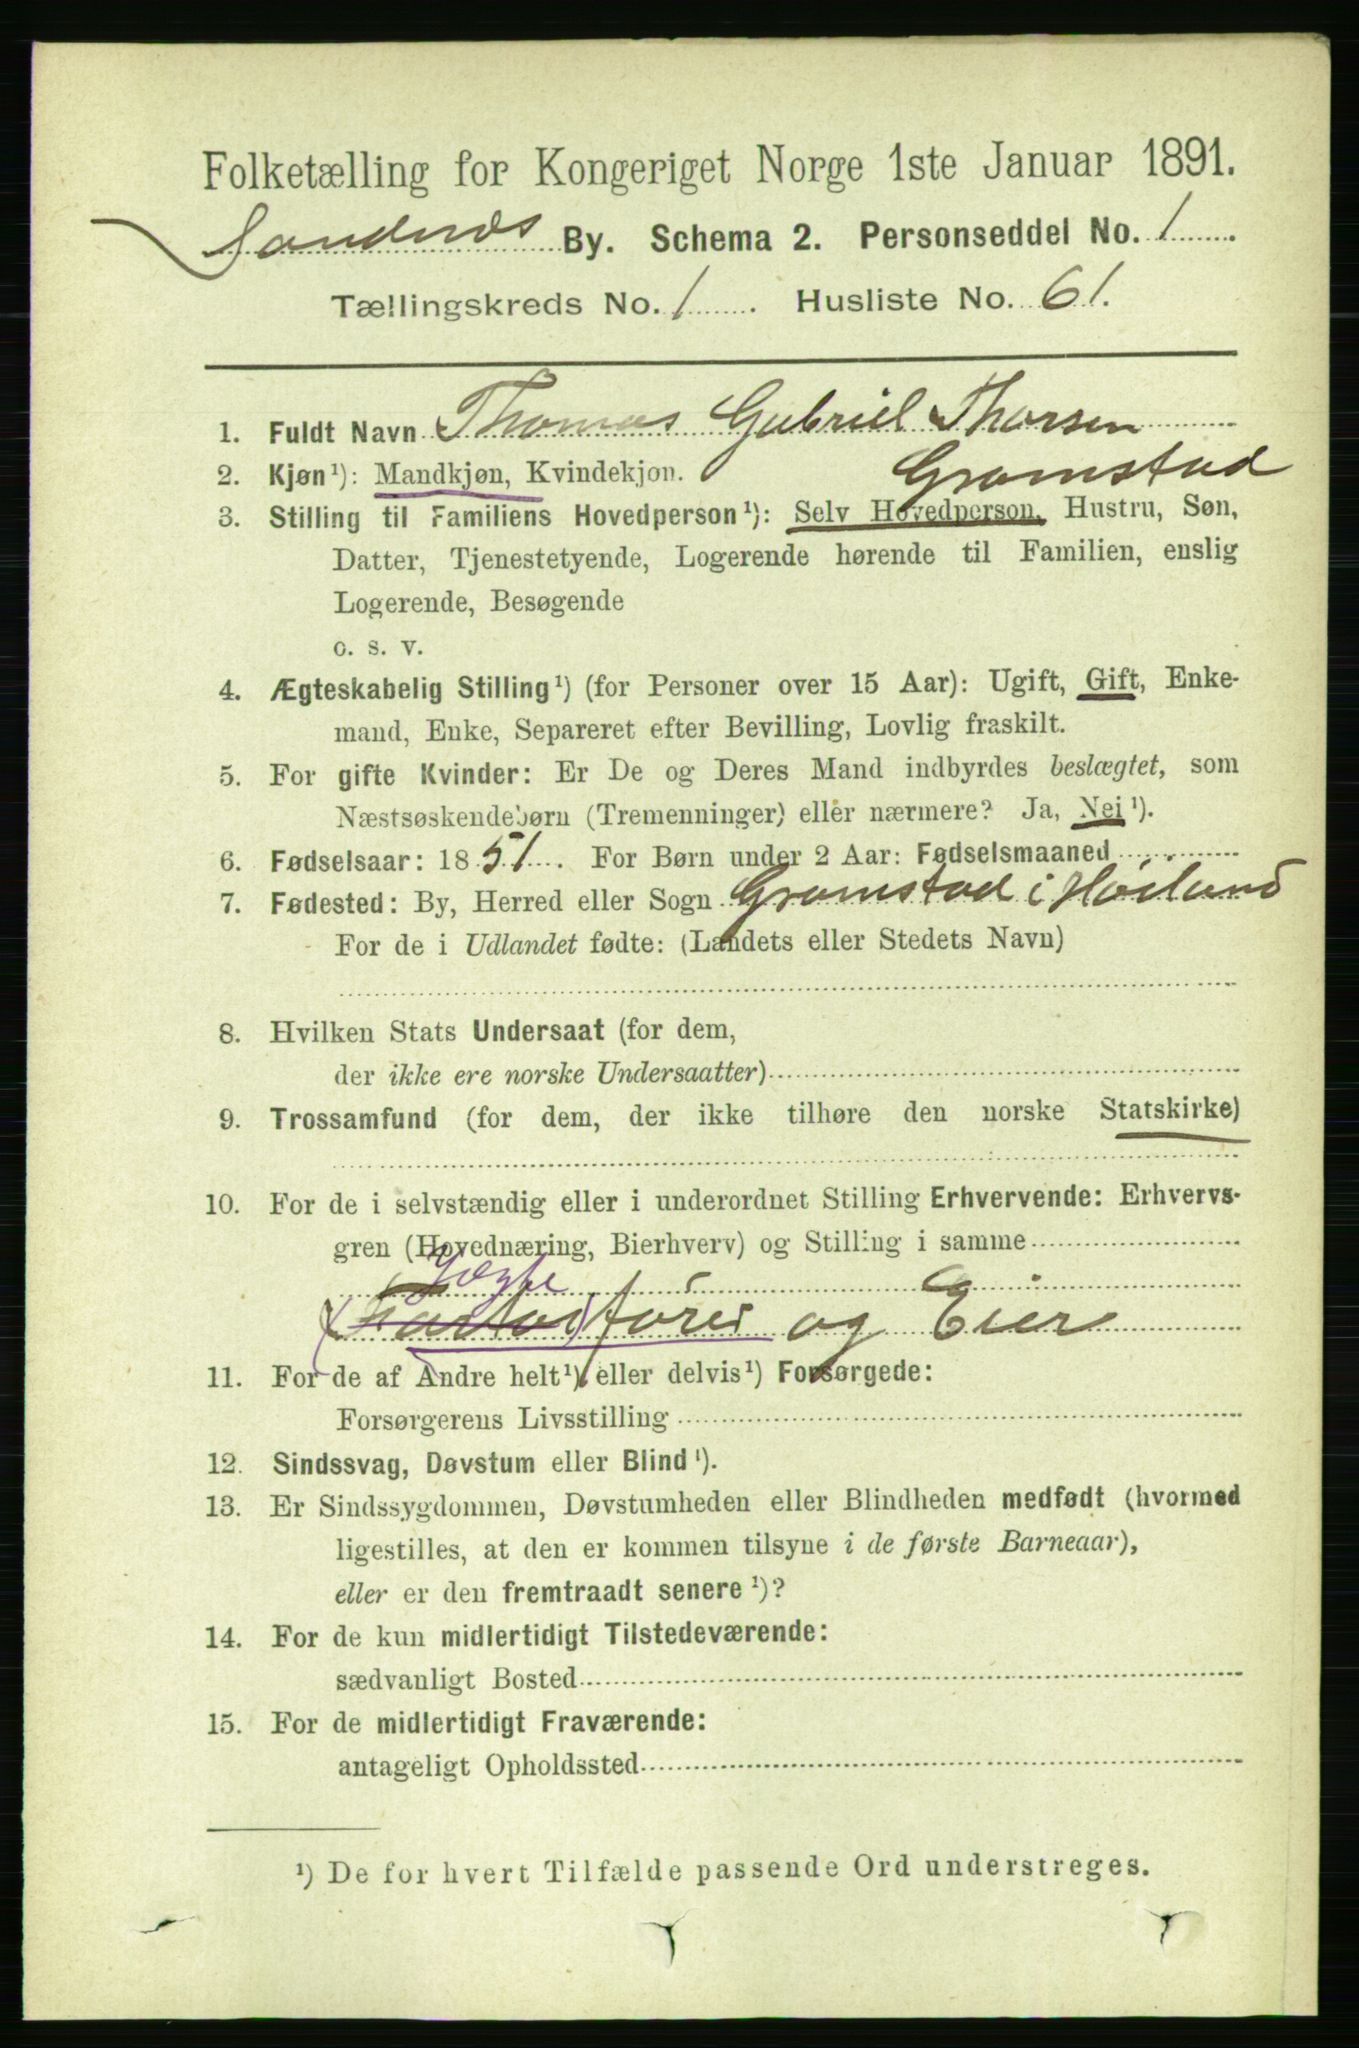 Folketælling for Kongeriget Norge 1ste Januar 1891.
Sandnæs By. Schema 2. Personseddel No. 1
Tællingskreds No. 1. Husliste No. 61.
1. Fuldt Navn Thomas Gabriel Thorsen
Gramstad
2. Kjøn¹): Mandkjøn, Kvindekjøn.
3. Stilling til Familiens Hovedperson¹): Selv Hovedperson, Hustru, Søn,
Datter, Tjenestetyende, Logerende hørende til Familien, enslig
Logerende, Besøgende
o. s. v.
4. Ægteskabelig Stilling¹) (for Personer over 15 Aar): Ugift, Gift, Enke-
mand, Enke, Separeret efter Bevilling, Lovlig fraskilt.
5. For gifte Kvinder: Er De og Deres Mand indbyrdes beslægtet, som
Næstsøskendebørn (Tremenninger) eller nærmere? Ja, Nei¹).
6. Fødselsaar: 1851. For Børn under 2 Aar: Fødselsmaaned
7. Fødested: By, Herred eller Sogn Gramstad i Høiland
For de i Udlandet fødte: (Landets eller Stedets Navn)
8. Hvilken Stats Undersaat (for dem,
der ikke ere norske Undersaatter)
9. Trossamfund (for dem, der ikke tilhøre den norske Statskirke)
10. For de i selvstændig eller i underordnet Stilling Erhvervende: Erhvervs-
gren (Hovednæring, Bierhverv) og Stilling i samme
Jægte
(Fartøi) fører og Eier
11. For de af Andre helt¹) eller delvis¹) Forsørgede:
Forsørgerens Livsstilling
12. Sindssvag, Døvstum eller Blind¹).
13. Er Sindssygdommen, Døvstumheden eller Blindheden medfødt (hvormed
ligestilles, at den er kommen tilsyne i de første Barneaar),
eller er den fremtraadt senere¹)?
14. For de kun midlertidigt Tilstedeværende:
sædvanligt Bosted
15. For de midlertidigt Fraværende:
antageligt Opholdssted
¹) De for hvert Tilfælde passende Ord understreges.